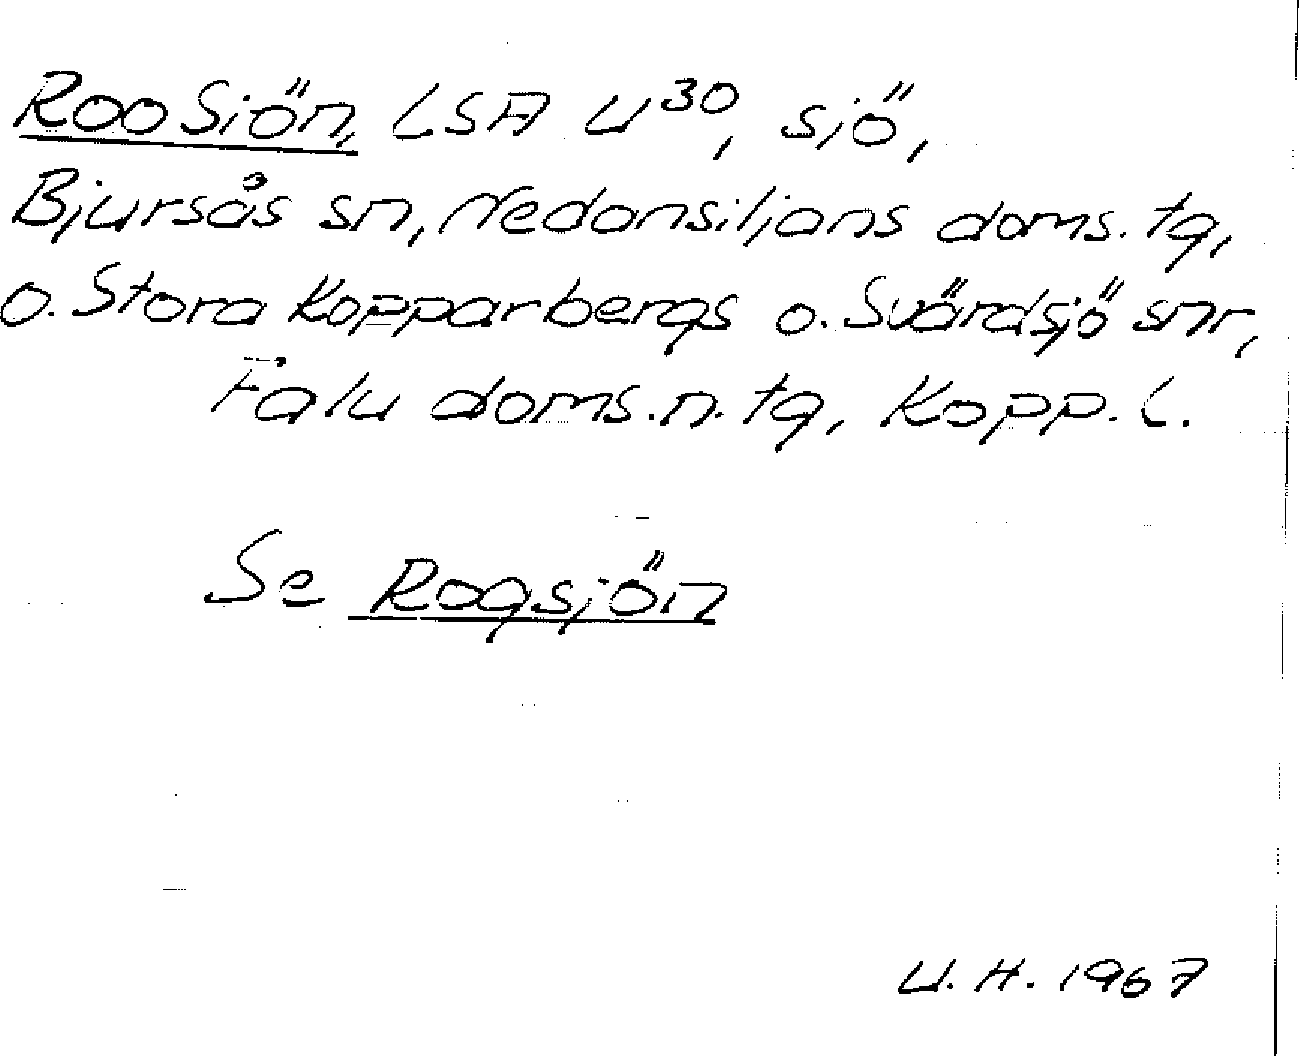 Roo Siön, LSA U30, sjö,
Bjursås sn, Nedansiljans doms. tg,
o. Stora Kopparbergs o. Svärdsjö snr,
Falu doms.n. tg, Kopp. l.
Se Rogsjön
U.H. 1967